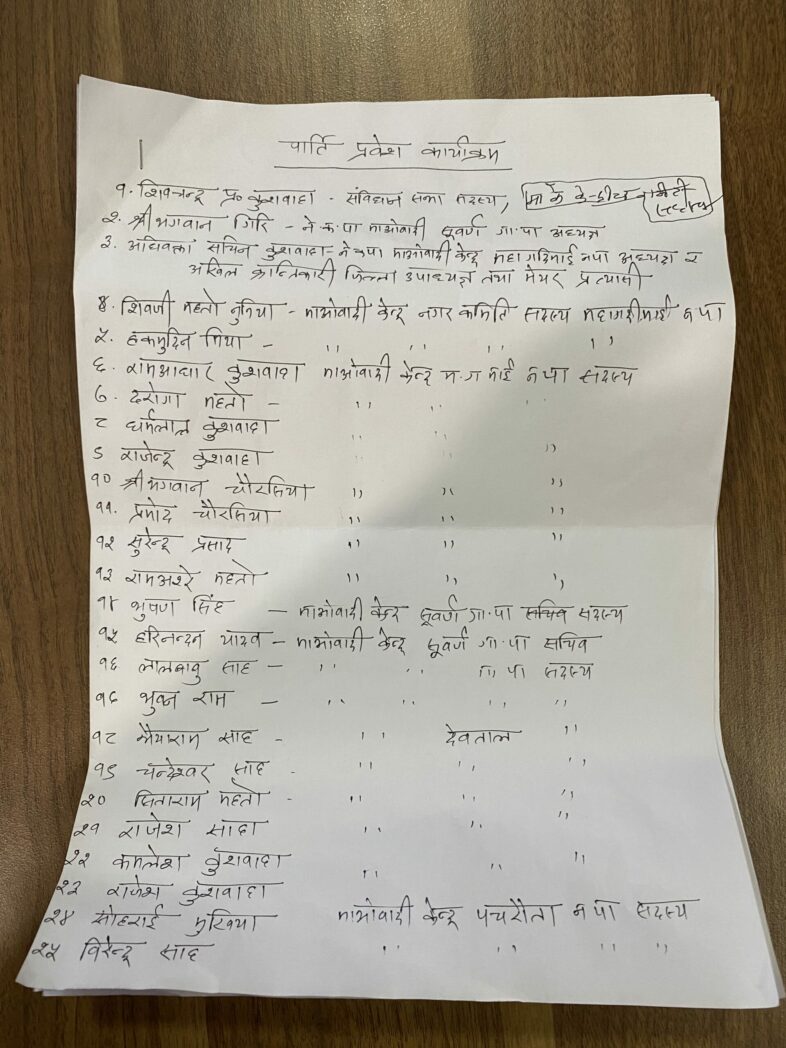 पार्टि प्रवेश कार्यक्रम
१. शिवचन्द्र प्र० कुशवाहा - संविधान सभा सदस्य, मा के केन्द्रीय कमिटी सदस्य
२. श्री भगवान गिरि - ने क पा माओवादी सूवर्ण गा.पा अध्यक्ष
३. अधिवक्ता सचिन कुशवाहा - ने क पा माओवादी केन्द्र महागढिमाई नपा अध्यक्ष र
अखिल क्रान्तिकारी जिल्ला उपाध्यक्ष तथा मेयर प्रत्यासी
४. शिवजी महतो नुनिया - माओवादी केन्द्र नगर कमिति सदस्य महागढीमाई न पा
५. हकमुदिन मिया - ,, ,, ,, ,,
६. रामआधार कुशवाहा माओवादी केन्द्र म.ग माई न पा सदस्य
७. दरोगा महतो - ,, ,,
८ धर्मलाल कुशवाहा ,, ,,
९ राजेन्द्र कुशवाहा ,, ,, ,,
१० श्री भगवान चौरसिया ,, ,, ,,
११. प्रमोद चौरसिया ,, ,, ,,
१२ सुरेन्द्र प्रसाद ,, ,, ,,
१३ रामअश्रे महतो ,, ,, ,,
१४ भुषण सिंह - माओवादी केन्द्र सूवर्ण गा.पा सचिव सदस्य
१५ हरिनन्दन यादव - माओवादी केन्द्र सूवर्ण गा.पा सचिव
१६ लालबाबु साह - ,, ,, गा.पा सदस्य
१७ भुवन राम - ,, ,, ,, ,,
१८ भैयाराम साह - ,, देवताल ,,
१९ चन्देश्वर साह - ,, ,, ,,
२० सिताराम महतो - ,, ,, ,,
२१ राजेश साहा ,, ,, ,,
२२ कमलेश कुशवाहा ,, ,, ,,
२३ राजेश कुशवाहा
२४ सोहराई मुखिया माओवादी केन्द्र पचरौता न पा सदस्य
२५ विरेन्द्र साह ,, ,, ,, ,,